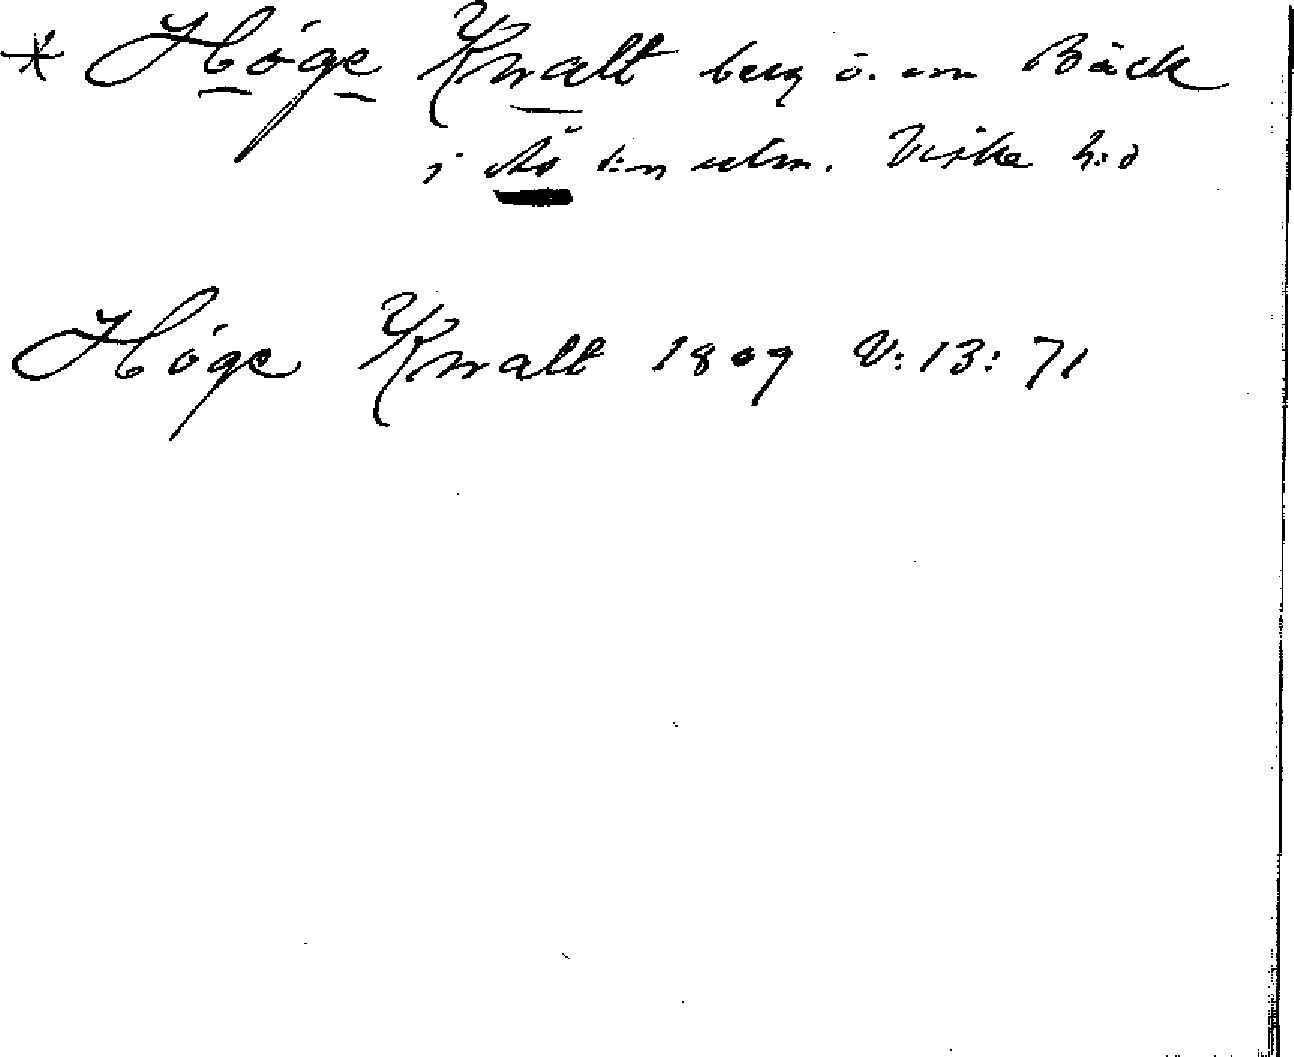 * Höge Knalt berg ö. om Bäck
i Ås sn utm. Viske h:d
Höge Knalt 1809 V:13:71